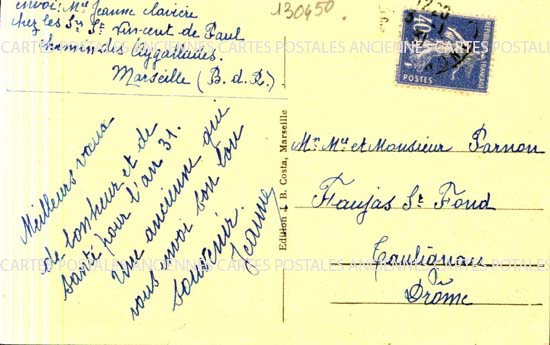 envoi: Mle Jeanne Clavière
chez les Srs St Vincent de Paul
chemin des Aygalades
Marseille (B. d. R.)
130450.
Meilleurs vœux
de bonheur et de
santé pour l'an 31.
Une ancienne qui
vous envoi son bon
souvenir.
Jeanne
Edition B. Costa, Marseille
40c
POSTES
RÉPUBLIQUE FRANÇAISE
Mr Me et Monsieur Parnon
Faujas St Fond
Taulignan
Drôme
CARTES POSTALES ANCIENNES CARTES POSTALES ANCIENNES
CARTES POSTALES ANCIENNES CARTES POSTALES ANCIENNES